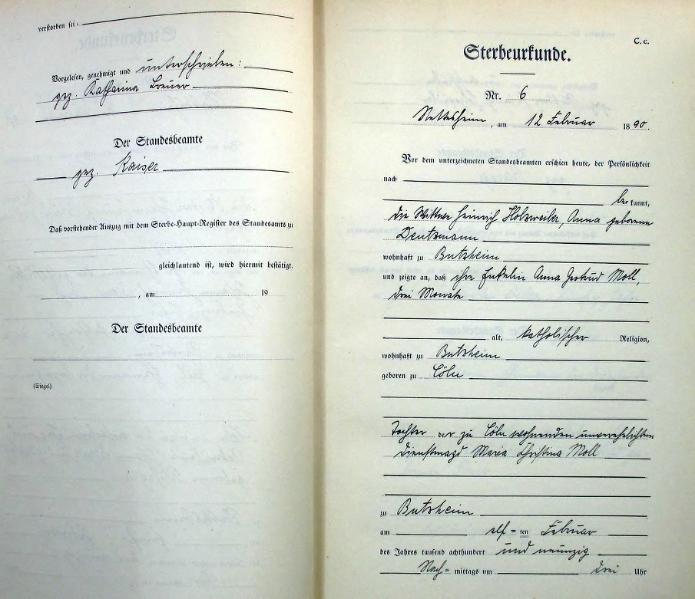 verstorben sei.
Vorgelesen, genehmigt und unterschrieben:
gez. Katharina Breuer
Der Standesbeamte
gez. Kaiser
Daß vorstehender Auszug mit dem Sterbe-Haupt-Register des Standesamts zu
gleichlautend ist, wird hiermit bestätigt.
, am 19
Der Standesbeamte
(Siegel)
C. c.
Sterbeurkunde.
Nr. 6
Nettesheim, am 12 Februar 1890.
Vor dem unterzeichneten Standesbeamten erschien heute, der Persönlichkeit
nach
bekannt,
die Wittwe Heinrich Holzweiler, Anna geborene
Deutzmann
wohnhaft zu Butzheim
und zeigte an, daß ihre Enkelin Anna Gertrud Moll,
drei Monate
alt, katholischer Religion,
wohnhaft zu Butzheim
geboren zu Cöln
Tochter der zu Cöln wohnenden unverehelichten
Dienstmagd Maria Christina Moll
zu Butzheim
am elf-ten Februar
des Jahres tausend achthundert und neunzig
Nach-mittags um drei Uhr